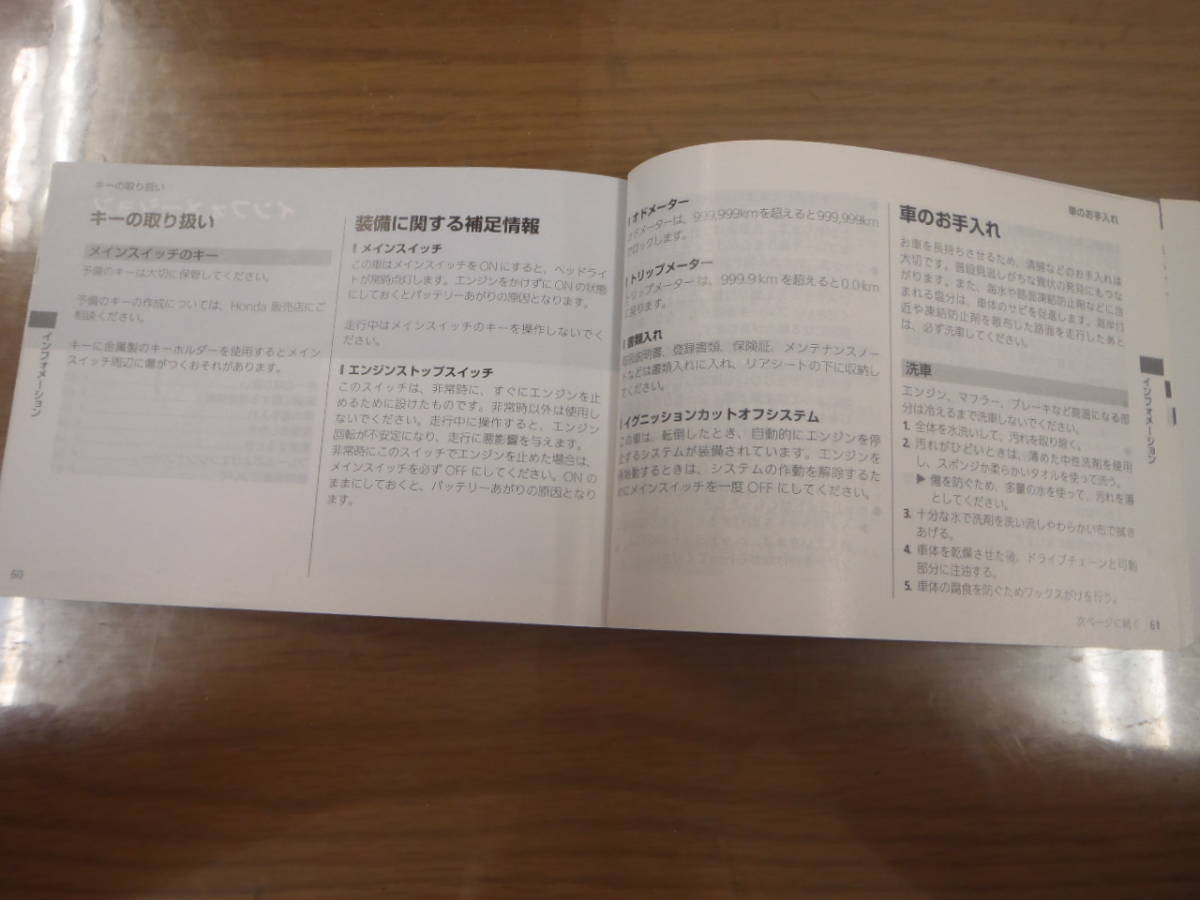 キーの取り扱い
キーの取り扱い
メインスイッチのキー
予備のキーは大切に保管してください。
予備のキーの作成については、Honda 販売店にご
相談ください。
キーに金属製のキーホルダーを使用するとメイン
スイッチ周辺に傷がつくおそれがあります。
インフォメーション
60
装備に関する補足情報
メインスイッチ
この車はメインスイッチをONにすると、ヘッドライ
トが常時点灯します。エンジンをかけずにONの状態
にしておくとバッテリーあがりの原因となります。
走行中はメインスイッチのキーを操作しないでく
ださい。
エンジンストップスイッチ
このスイッチは、非常時に、すぐにエンジンを止
めるために設けたものです。非常時以外は使用し
ないでください。走行中に操作すると、エンジン
回転が不安定になり、走行に悪影響を与えます。
非常時にこのスイッチでエンジンを止めた場合は、
メインスイッチを必ず OFF にしてください。ONの
ままにしておくと、バッテリーあがりの原因となり
ます。
オドメーター
オドメーターは、999,999kmを超えると999,999km
でロックします。
トリップメーター
トリップメーターは、999.9 kmを超えると0.0 km
に戻ります。
書類入れ
取扱説明書、登録書類、保険証、メンテナンスノー
トなどは書類入れに入れ、リアシートの下に収納し
てください。
イグニッションカットオフシステム
この車は、転倒したとき、自動的にエンジンを停
止するシステムが装備されています。エンジンを
再始動するときは、システムの作動を解除するた
めにメインスイッチを一度 OFF にしてください。
車のお手入れ
車のお手入れ
お車を長持ちさせるため、清掃などのお手入れは
大切です。普段見逃しがちな異状の発見にもつな
がります。また、海水や路面凍結防止剤などに含
まれる塩分は、車体のサビを促進します。海岸付
近や凍結防止剤を散布した路面を走行したあと
は、必ず洗車してください。
洗車
エンジン、マフラー、ブレーキなど高温になる部
分は冷えるまで洗車しないでください。
1. 全体を水洗いして、汚れを取り除く。
2. 汚れがひどいときは、薄めた中性洗剤を使用
し、スポンジか柔らかいタオルを使って洗う。
▶ 傷を防ぐため、多量の水を使って、汚れを落
としてください。
3. 十分な水で洗剤を洗い流しやわらかい布で拭き
あげる。
4. 車体を乾燥させた後、ドライブチェーンと可動
部分に注油する。
5. 車体の腐食を防ぐためワックスがけを行う。
インフォメーション
次ページに続く 61